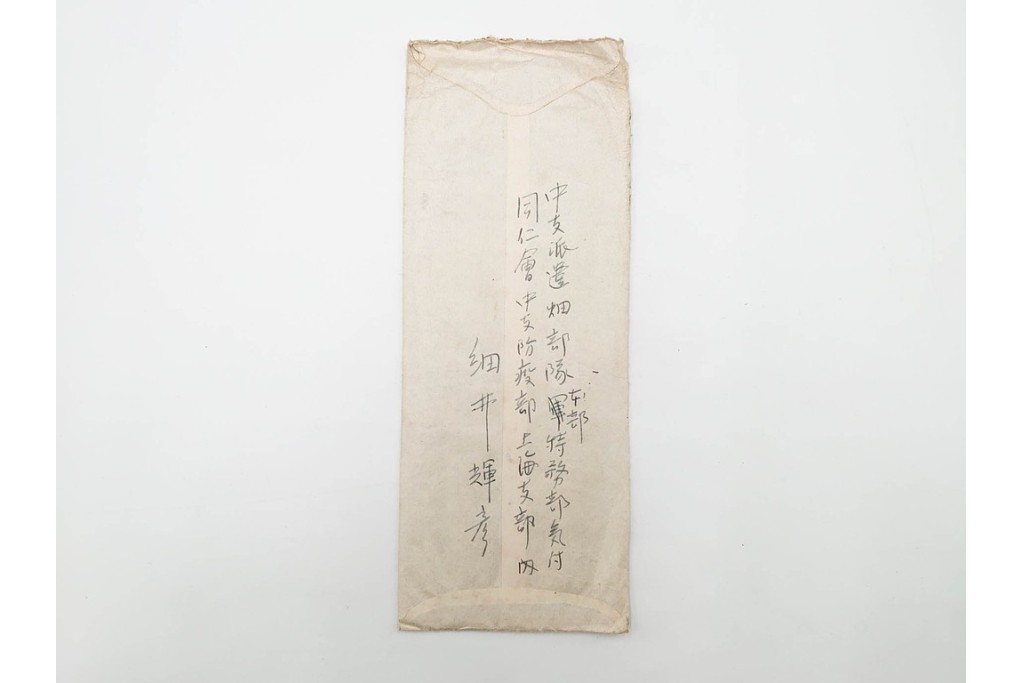 中支派遣畑部隊軍特務部気付
本部
同仁會中支防疫部上海支部内
細井輝彦